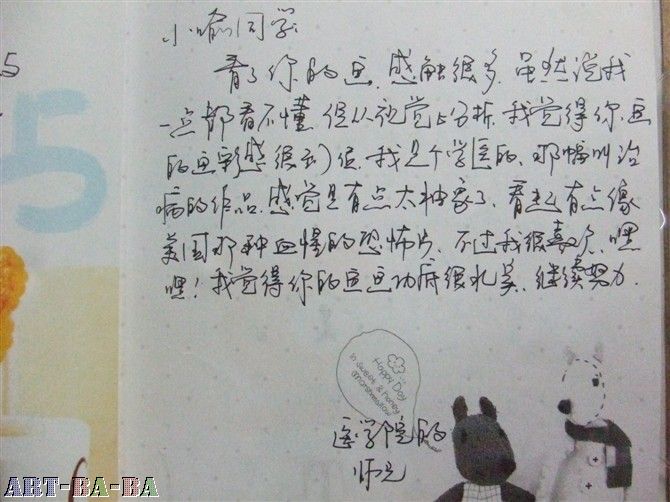 5
5
小喻同学:
看了你的画,感触很多,虽然说我
一点都看不懂,但从视觉上分析,我觉得你画
的画彩感很到位,我是个学医的,那幅叫治
病的作品,感觉是有点太抽象了,看起有点像
美国那种血腥的恐怖片,不过我很喜欢,嘿
嘿!我觉得你的画画功底很扎实,继续努力.
Happy Day
in sweet & honey
marshmallow
医学院的
师兄
ART-BA-BA